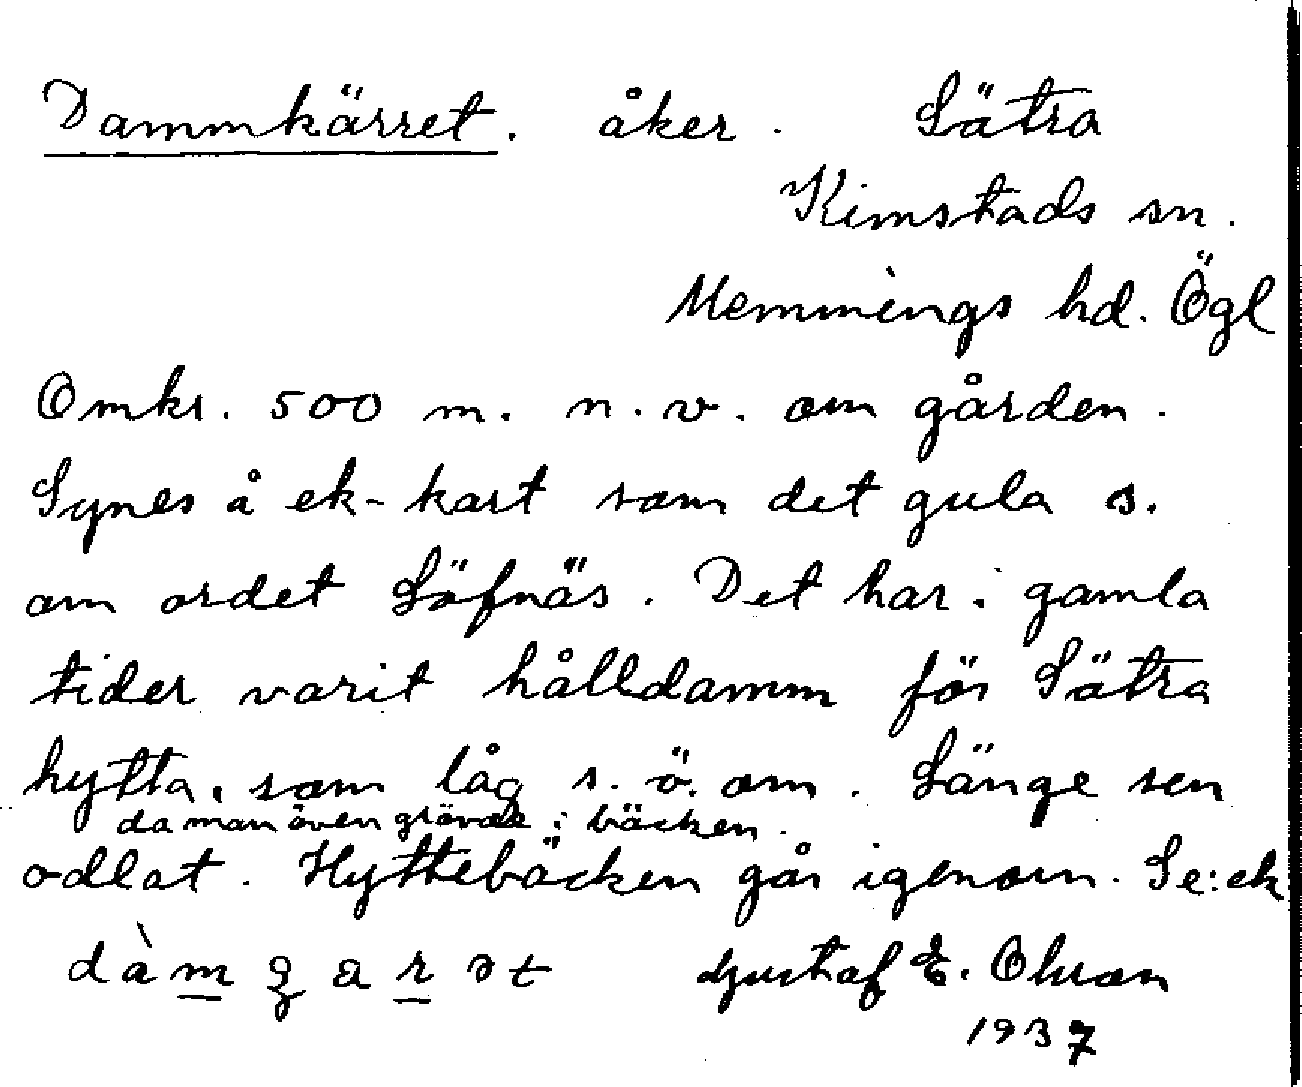 Dammkärret. åker. Sätra
Kimstads sn.
Memmings hd. Ögl
Omkr. 500 m. n.v. om gården.
Synes å ek-kart som det gula s.
om ordet Löfnäs. Det har i gamla
tider varit hålldamm för Sätra
hytta, som låg s.ö. om. Länge sen
da man även grävde i bäcken.
odlat. Hyttebäcken går igenom. Se: ek
Gustaf E. Olson
1937